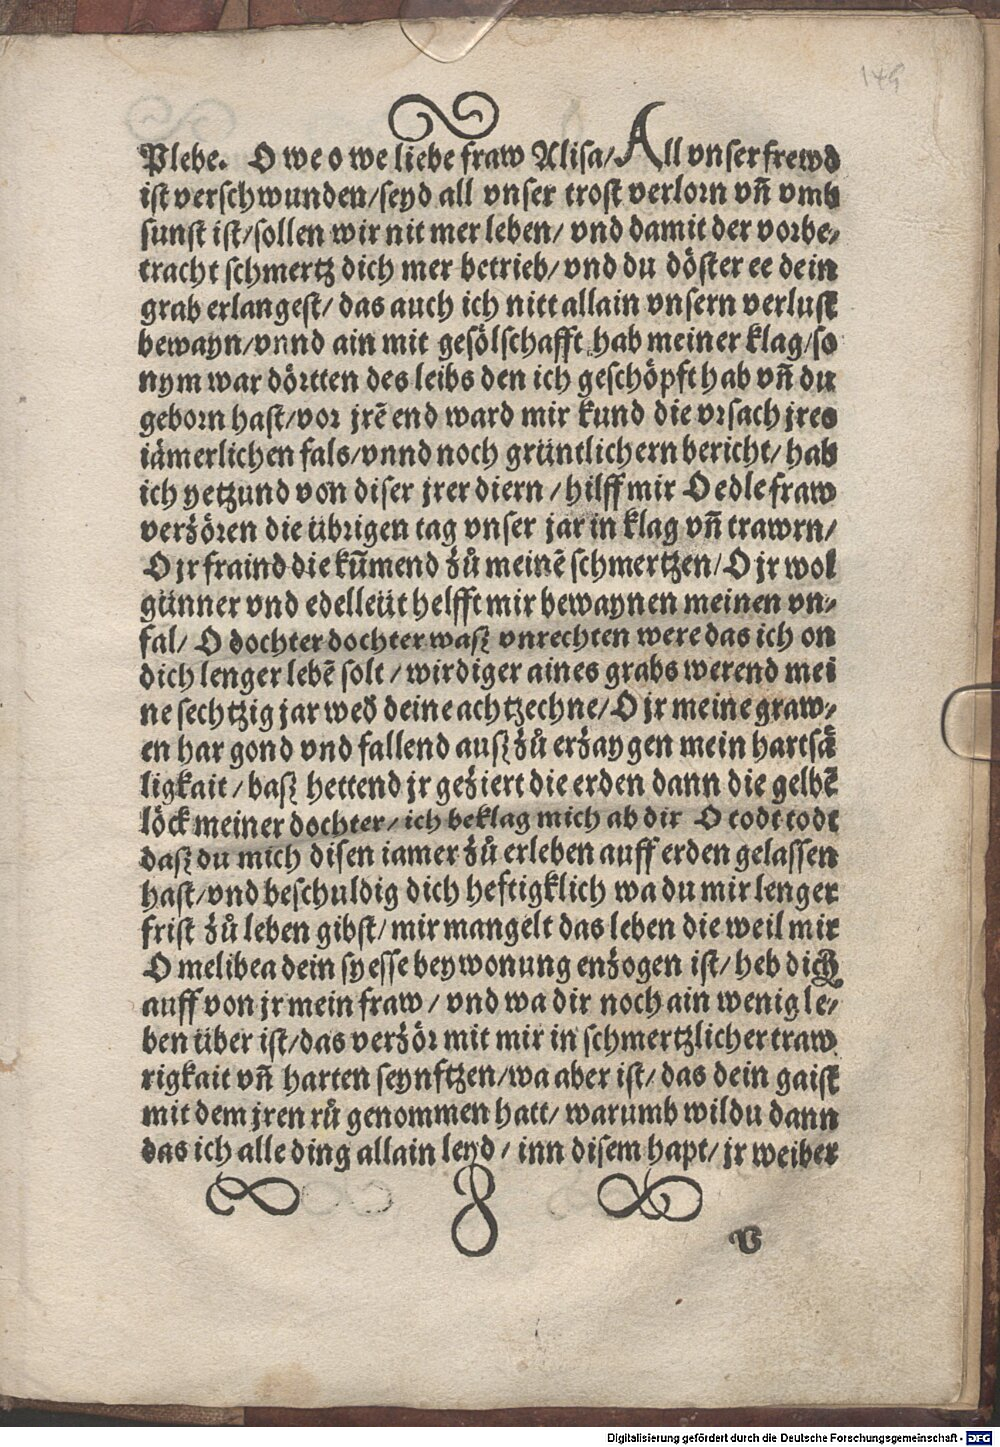 149
Plebe. O we o we liebe fraw Alisa/ All vnser frewd
ist verschwunden/ seyd all vnser trost verlorn vn̄ vmb
sunst ist/ sollen wir nit mer leben/ vnd damit der vorbe⸗
tracht schmertz dich mer betrieb/ vnd du döster ee dein
grab erlangest/ das auch ich nitt allain vnsern verlust
bewayn/ vnnd ain mit gesölschafft hab meiner klag/ so
nym war dörtten des leibs den ich geschöpft hab vn̄ du
geborn hast/ vor jrē end ward mir kund die vrsach jres
iämerlichen fals/ vnnd noch grüntlichern bericht/ hab
ich yetzund von diser jrer diern / hilff mir O edle fraw
verzören die übrigen tag vnser jar in klag vn̄ trawrn/
O jr fraind die kūmend zů meinē schmertzen/ O jr wol
günner vnd edelleüt helfft mir bewaynen meinen vn⸗
fal/ O dochter dochter wasz vnrechten were das ich on
dich lenger lebē solt / wirdiger aines grabs werend mei
ne sechtzig jar wed̄ deine achtzechne/ O jr meine graw⸗
en har gond vnd fallend ausz zů erzaygen mein hartsä
ligkait / basz hettend jr geziert die erden dann die gelbē
löck meiner dochter/ ich beklag mich ab dir O todt todt
dasz du mich disen iamer zů erleben auff erden gelassen
hast/ vnd beschuldig dich heftigklich wa du mir lenger
frist zů leben gibst/ mir mangelt das leben die weil mir
O melibea dein syesse beywonung enzogen ist/ heb dich
auff von jr mein fraw / vnd wa dir noch ain wenig le⸗
ben über ist/ das verzör mit mir in schmertzlicher traw
rigkait vn̄ harten seynftzen/ wa aber ist/ das dein gaist
mit dem jren rů genommen hatt/ warumb wildu dann
das ich alle ding allain leyd / inn disem hapt/ jr weiber
v
Digitalisierung gefördert durch die Deutsche Forschungsgemeinschaft - DFG